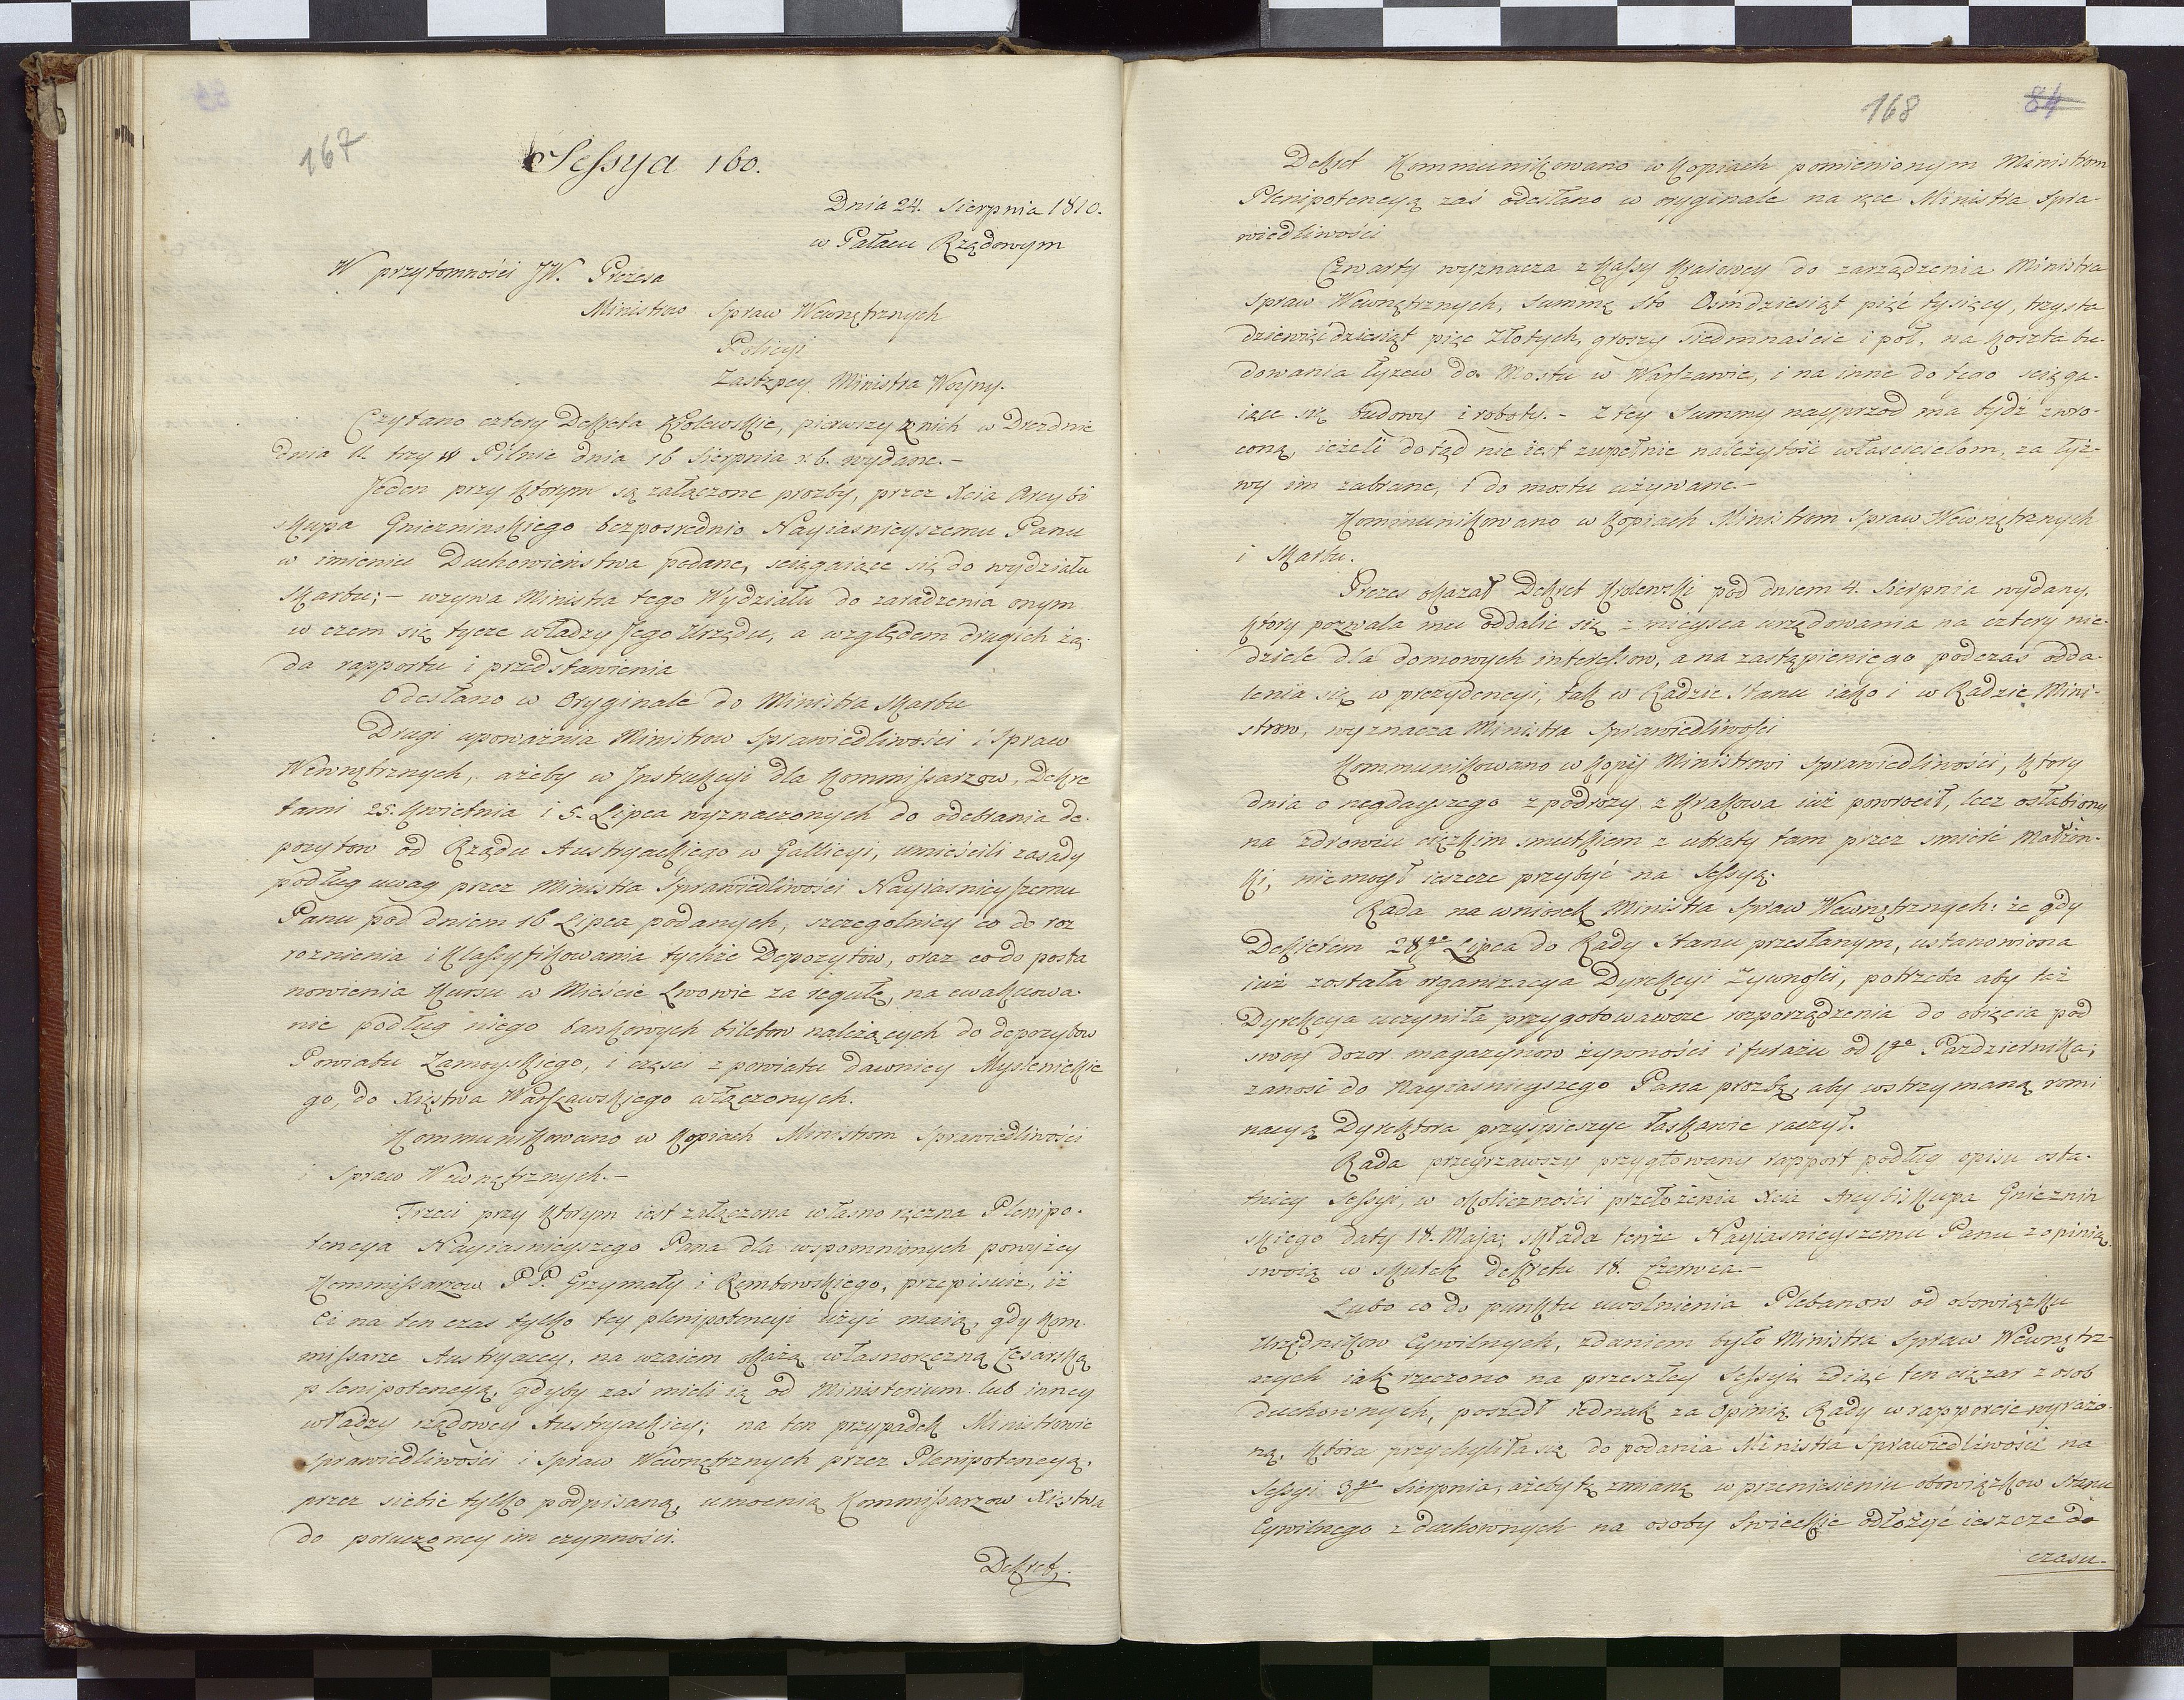 167
Sessya 160.
Dnia 24. Sierpnia 1810.
w Pałacu Rządowym
W przytomności JW. Prezesa
Ministrow Spraw Wewnętrznych
Policyi
Zastępcy Ministra Woyny.
Czytano cztery Dekreta Krolewskie, pierwszy z nich w Dreznie
dnia 11. trzy w Pilnic dnia 16 Sierpnia r. b. wydane. –
Jeden przy ktorym są załączone proźby, przez Xcia Arcybi
skupa Gnieznińskiego bezposrednio Nayiasnieyszemu Panu
w imieniu Duchowieństwa podane, sciągaiące się do wydziału
Skarbu; – wzywa Ministra tego Wydziału do zaradzenia onym
w czem się tycze władzy Jego Urzędu, a względem drugich żą-
da rapportu i przedstawienia
Odesłano w Oryginale do Ministra Skarbu
Drugi upoważnia Ministrow Sprawiedliwości i Spraw
Wewnętrznych, ażeby w Instrukcyi dla Kommissarzow, Dekre
tami 25. Kwietnia i 5. Lipca wyznaczonych do odebrania de-
pozytow od Rządu Austryackiego w Gallicyi, umieścili zasady
podług uwag przez Ministra Sprawiedliwości Nayiasnieyszemu
Panu pod dniem 16 Lipca podanych, szczegolniey co do roz
roznienia i klassyfikowania tychże Depozytów, oraz co do posta
nowienia Kursu w Mieście Lwowie za regułę, na ewakuowa-
nie podług niego bankowych biletow należących do depozytow
Powiatu Zamoyskiego, i częsci z powiatu dawniey Myslenickie
go, do Xięstwa Warszawskiego włączonych.
Kommunikowano w kopiach Ministrom Sprawiedliwości
i Spraw Wewnętrznych. –
Trzeci przy ktorym iest załączona własno ręczna Plenipo-
tencya Nayiasnieyszego Pana dla wspomnionych powyżey
Kommissarzow PP. Grzymały i Rembowskiego, przepisuie, iż
Ci na ten czas tylko tey plenipotencyi użyć maią, gdy Kom-
missarze Austryaccy, na wzaiem okażą własnoręczną Cesarską
plenipotencyą, gdyby zaś mieli ią od Ministerium lub inney
władzy rządowey Austryackiey; na ten przypadek Ministrowie
Sprawiedliwości i Spraw Wewnętrznych przez Plenipotencyą,
przez siebie tylko podpisaną, umocnią Kommissarzow Xięstwa
do poruczoney im czynności.
Dekret,
168
84
Dekret Kommunikowano w kopiach pomienionym Ministrom
Plenipotencyą zaś odesłano w oryginale na ręce Ministra Spra-
wiedliwości
Czwarty wyznacza z Kassy Kraiowey do zarządzenia Ministra
Spraw Wewnętrznych, Summę sto Ośmdziesiąt pięć tysięcy, trzysta
dziewięcdziesiąt pięc Złotych, groszy siedmnaście i poł, na koszta bu-
dowania łyzew do Mostu w Warszawie, i na inne do tego sciąga-
iące się budowy i roboty. – Z tey Summy nayprzod ma bydź zwro-
coną, ieżeli dotąd nie iest zupełnie należytość własciciclom, za łyż-
wy im zabrane, i do mostu używane. –
Kommunikowano w kopiach Ministrom Spraw Wewnętrznych
i Skarbu.
Prezes okazał Dekret Krolewski pod dniem 4. Sierpnia wydany,
ktory pozwala mu oddalic się z mieysca urzędowania na cztery nie-
dziele dla domowych interessow, a na zastąpienie go podczas odda-
lenia się w prezydencyi, tak w Radzie Stanu iako i w Radzie Mini-
strow, wyznacza Ministra Sprawiedliwości
Kommunikowano w kopij Ministrowi Sprawiedliwości, ktory
dnia onegdayszego z podrozy z Krakowa iuż powrocił, lecz osłabiony
na zdrowiu cięzkim smutkiem z utraty tam przez smierć Małżon-
ki, niemogł ieszcze przybyć na Sessyą.
Rada na wniosek Ministra Spraw Wewnętrznych: że gdy
Dekretem 28go Lipca do Rady Stanu przesłanym, ustanowiona
iuż została organizacya Dyrekcyi Zywności, potrzeba aby też
Dyrekcya uczyniła przygotowawcze rozporządzenia do obięcia pod
swoy dozor magazynow żywności i furażu od 1go Pazdziernika;
zanosi do Nayiasnieyszego Pana prozbę, aby wstrzymaną nomi
nacyą Dyrektora przyspieszyc łaskawie raczył.
Rada przeyrzawszy przygtowany rapport podług opisu osta-
tniey Sessyi, w okoliczności przełożenia Xcia Arcybiskupa Gnieznin
skiego daty 18. Maja, składa tenże Nayiasnieyszemu Panu z opinią
swoią w skutek dekretu 18. Czerwca. –
Lubo co do punktu uwolnienia Plebanow od obowiązku
Urzędnikow Cywilnych, zdaniem było Ministra Spraw Wewnętrz-
nych iak rzeczono na przeszłey Sessyi, zdiąc ten ciężar z osob
duchownych, poszedł iednak za Opinią Rady w rapporcie wyrażo-
ną, ktora przychyliła się do podania Ministra Sprawiedliwości na
Sessyi 3go Sierpnia, ażeby tę zmianę w przeniesieniu obowiązkow Stanu
Cywilnego z duchownych na osoby Swieckie odłożyć ieszcze do
czasu-